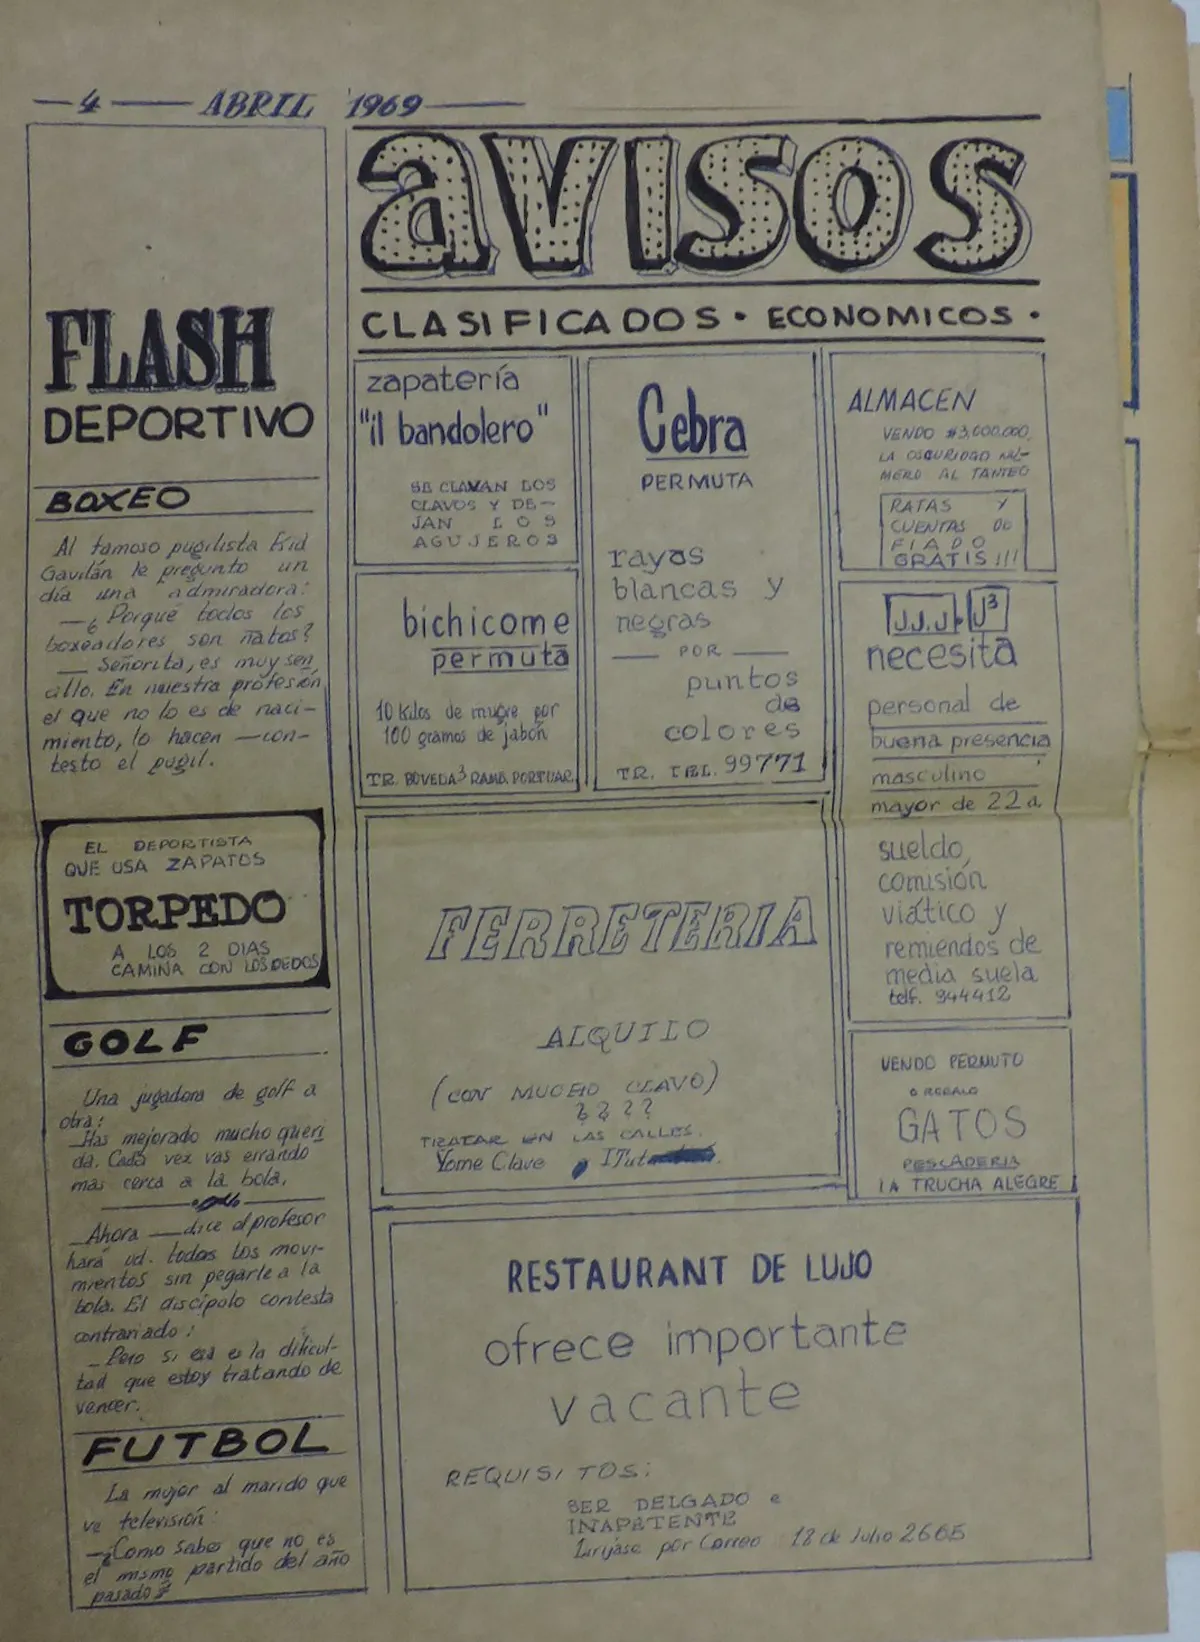 — 4 — ABRIL 1969 —
FLASH
DEPORTIVO
BOXEO
Al famoso pugilista Kid
Gavilán le pregunto un
día una admiradora:
— ¿Porqué todos los
boxeadores son ñatos?
— Señorita, es muy sen
cillo. En nuestra profesión,
el que no lo es de naci-
miento, lo hacen —con-
testo el pugil.
EL DEPORTISTA
QUE USA ZAPATOS
TORPEDO
A LOS 2 DIAS
CAMINA CON LOS DEDOS
GOLF
Una jugadora de golf a
otra:
_Has mejorado mucho queri
da. Cada vez vas errando
mas cerca a la bola.
_Ahora —dice el profesor
hará ud. todos los movi-
mientos sin pegarle a la
bola. El discípolo contesta
contrariado:
_Pero si esa es la dificul-
tad que estoy tratando de
vencer.
FUTBOL
La mujer al marido que
ve televisión:
—¿Como sabes que no es
el mismo partido del año
pasado?
avisos
CLASIFICADOS · ECONOMICOS ·
zapatería
"il bandolero"
SE CLAVAN LOS
CLAVOS Y DE-
JAN LOS
AGUJEROS
bichicome
permuta
10 kilos de mugre por
100 gramos de jabón
TR. BOVEDA 3 RAMB. PORTUAR.
Cebra
PERMUTA
rayas
blancas y
negras
— POR —
puntos
de
colores
TR. TEL. 99771
ALMACEN
VENDO $3,000.000,
LA OSCURIDAD NÚ-
MERO AL TANTEO
RATAS Y
CUENTAS DO
FIADO
GRATIS!!!
JJ.J. J3
necesita
personal de
buena presencia
masculino
mayor de 22 a.
sueldo,
comisión
viático y
remiendos de
media suela
telf. 944412
FERRETERIA
ALQUILO
(CON MUCHO CLAVO)
????
TRATAR EN LAS CALLES.
Yome Clave o ITut
VENDO PERMUTO
O REGALO
GATOS
PESCADERIA
LA TRUCHA ALEGRE
RESTAURANT DE LUJO
ofrece importante
vacante
REQUISITOS:
SER DELGADO e
INAPETENTE
Dirijase por Correo 18 de Julio 2665